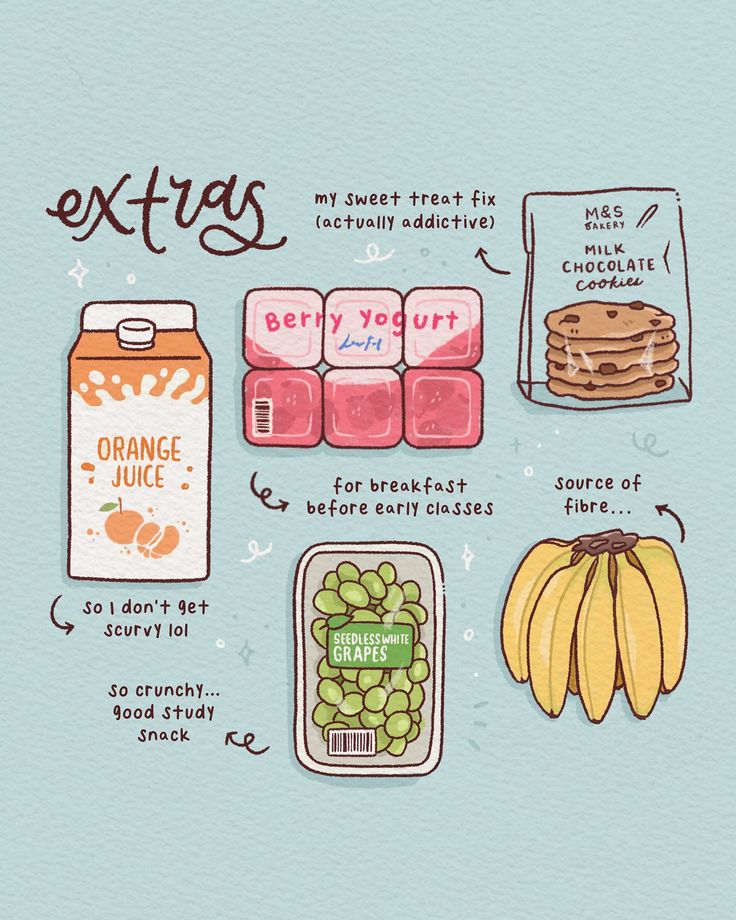 extras
my sweet treat fix
(actually addictive)
M&S
BAKERY
MILK
CHOCOLATE
Cookies
Berry Yogurt
ORANGE
JUICE
for breakfast
before early classes
source of
fibre...
so I don't get
scurvy lol
SEEDLESS WHITE
GRAPES
so crunchy...
good study
snack